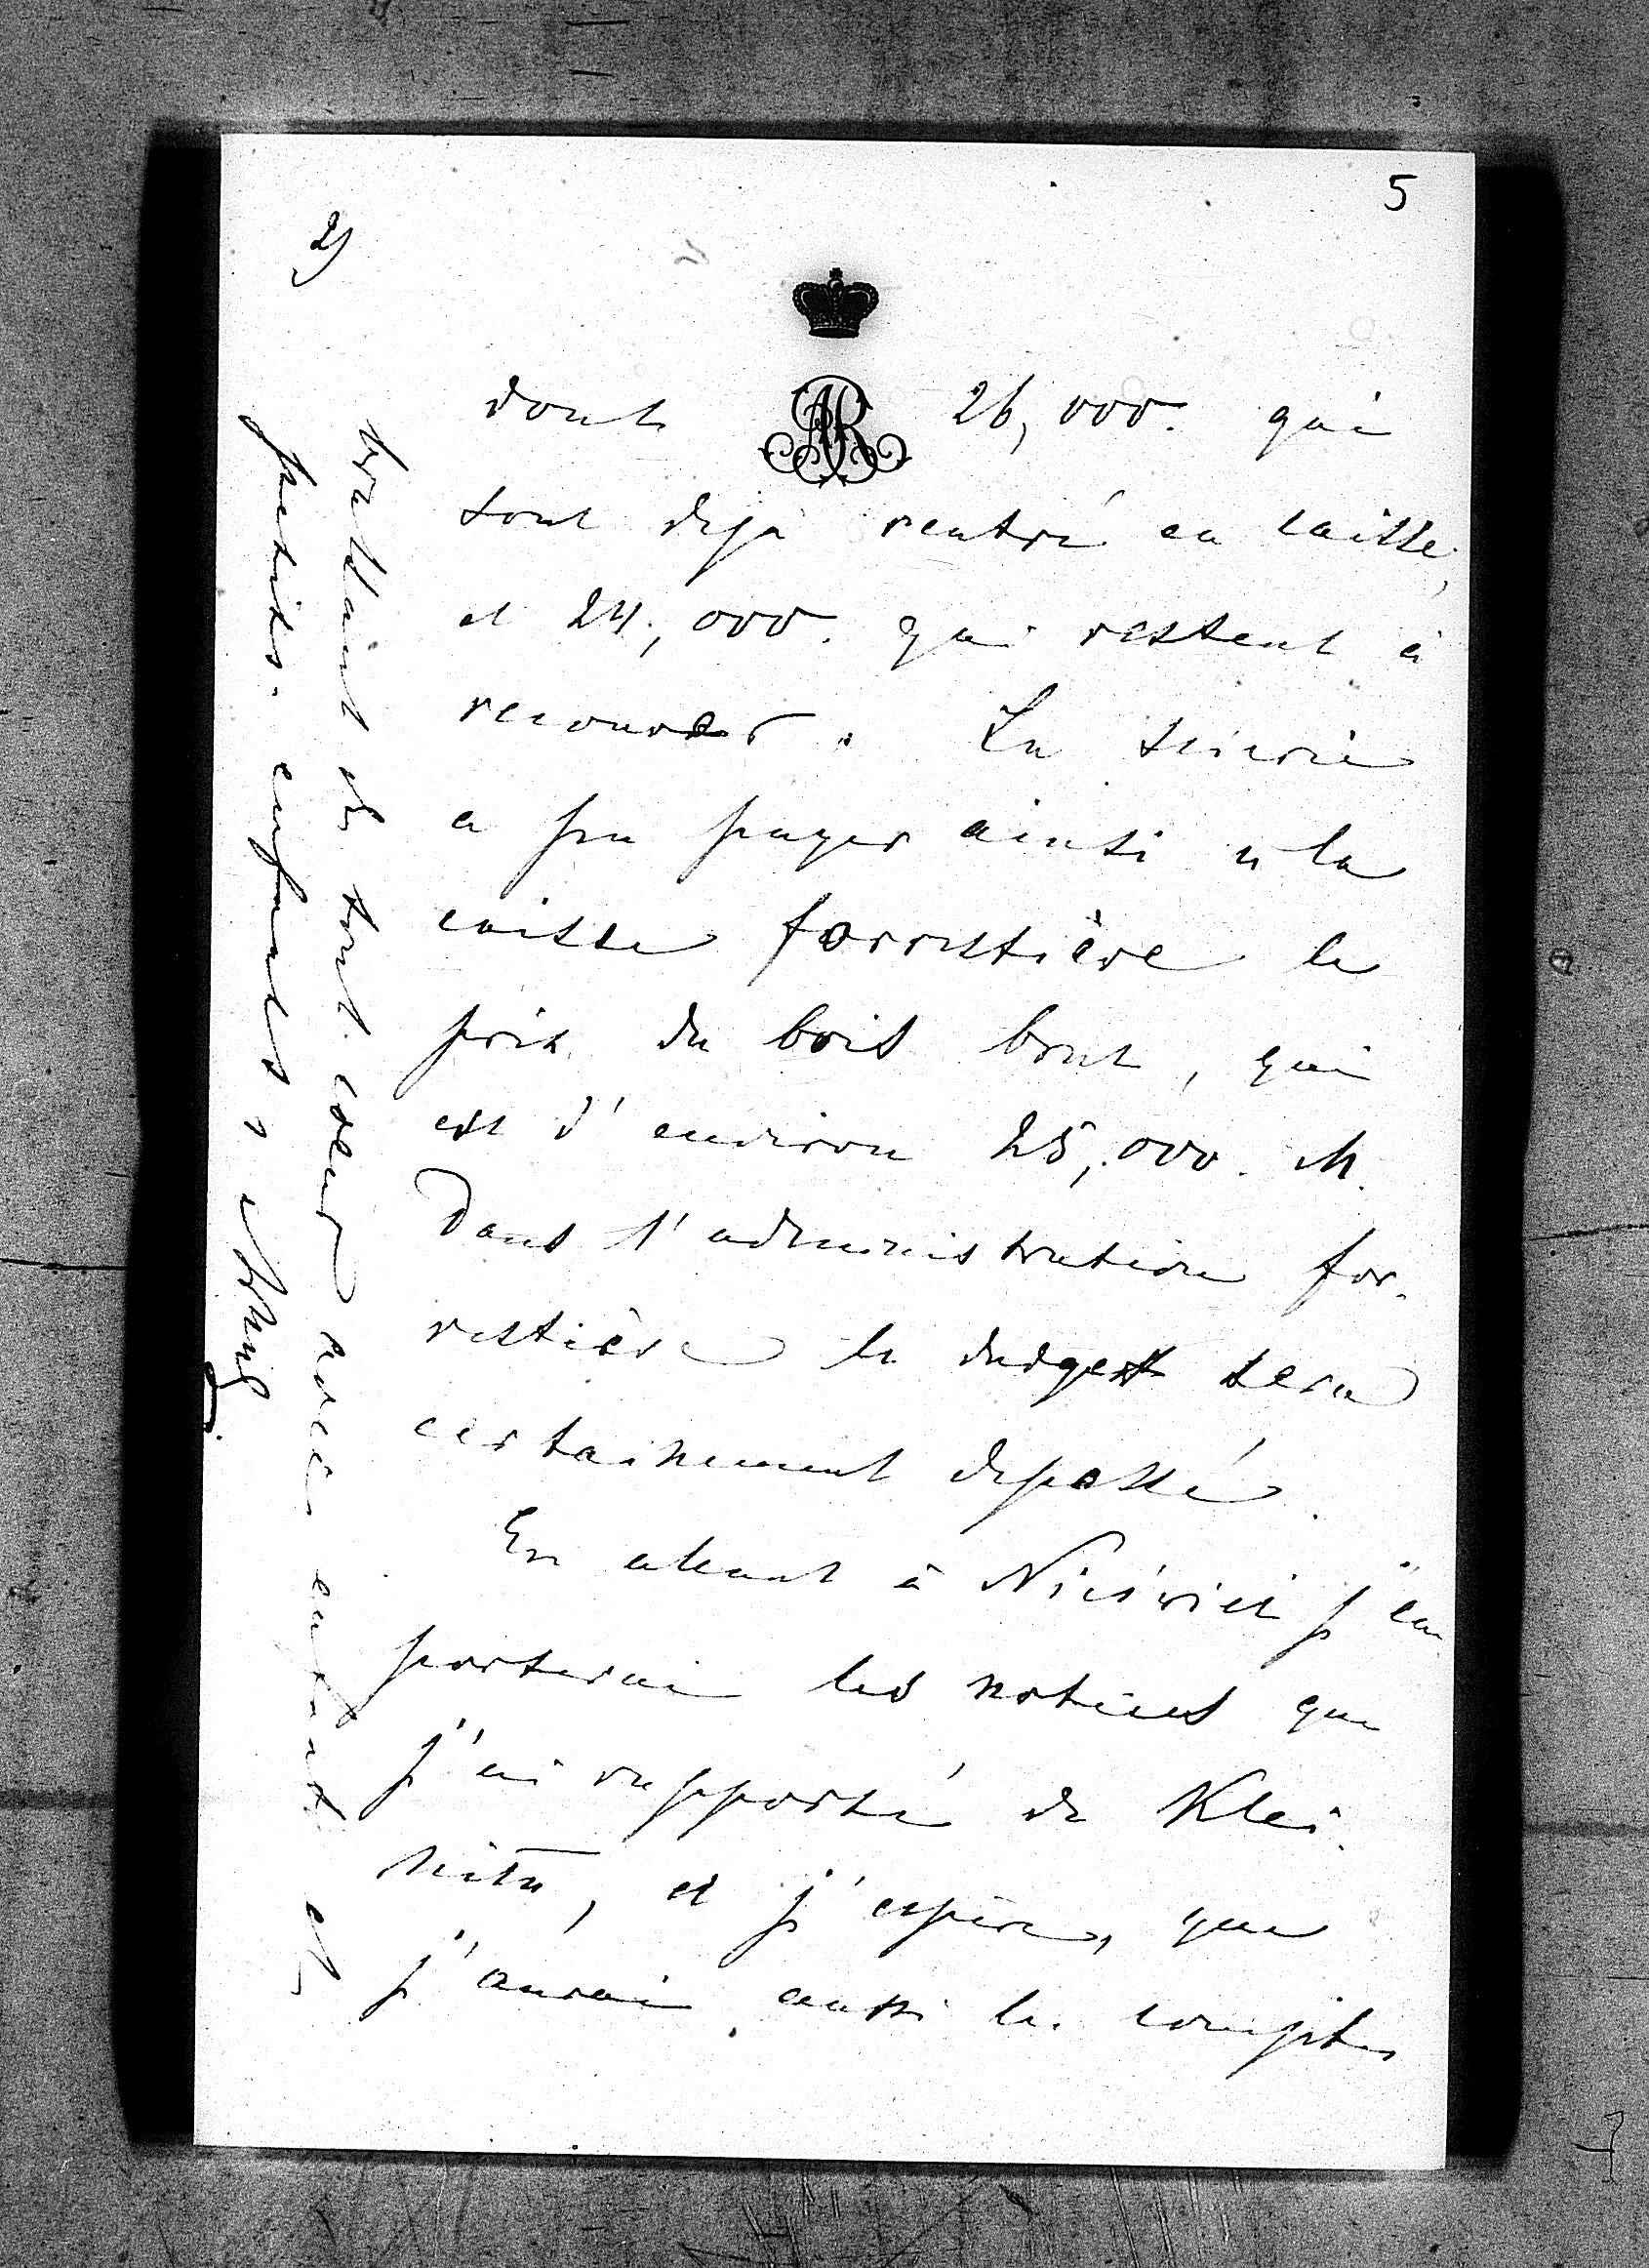 5
2)
AR
dont 26,000. qui
sont deja rentré en caisse,
et 24,000. qui restent à
recouvrer. La scierie
a pu payer ainsi a la
caisse forrestière le
prix du bois brut, qui
est d'environ 25,000. M.
Dans l'administration for-
restière le budget sera
certainement depassé.
En allant à Nieśwież j'em
porterai les notices que
j'ai rapporté de Klei-
nitz, et j'espère, que
j'aurai aussi les comptes
de tout coeur avec enfants et
petits-enfants,